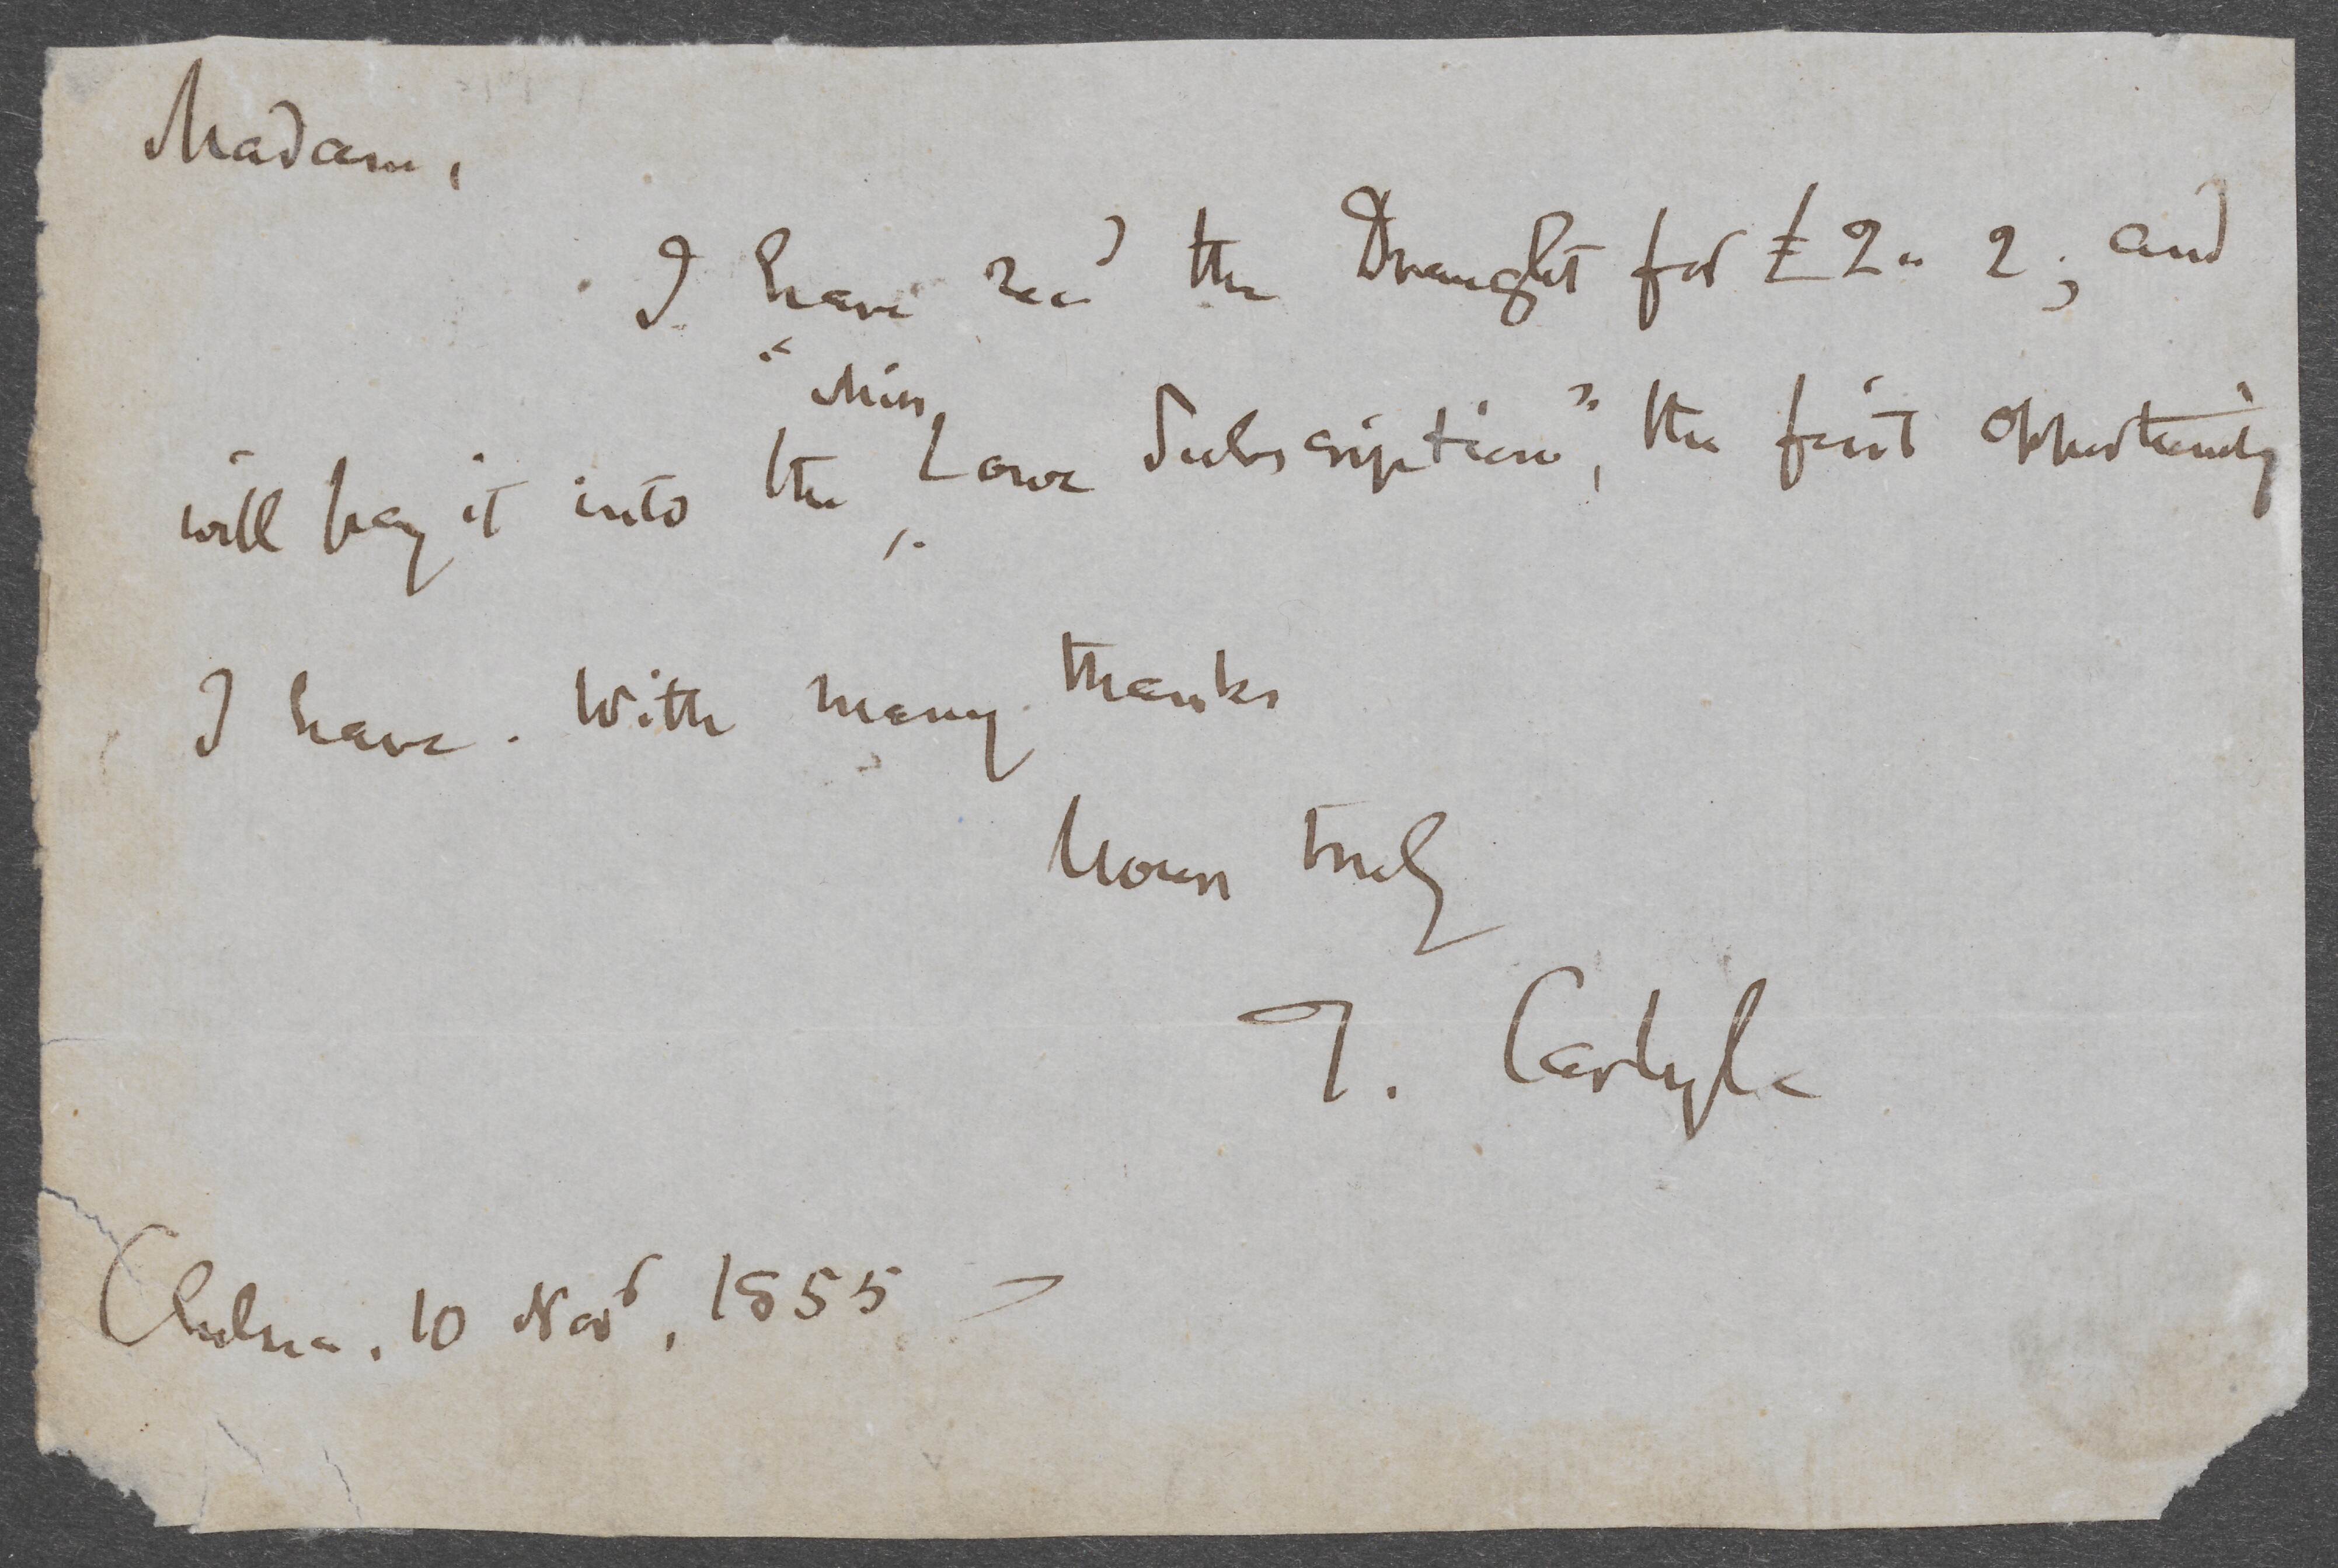 Madam,
I have recd the Draught for £2 " 2 ; and
will pay it into the "Miss Lowe Subscription", the first opportunity
I have. With many thanks
Yours truly
T. Carlyle
Chelsea, 10 Novr, 1855 —